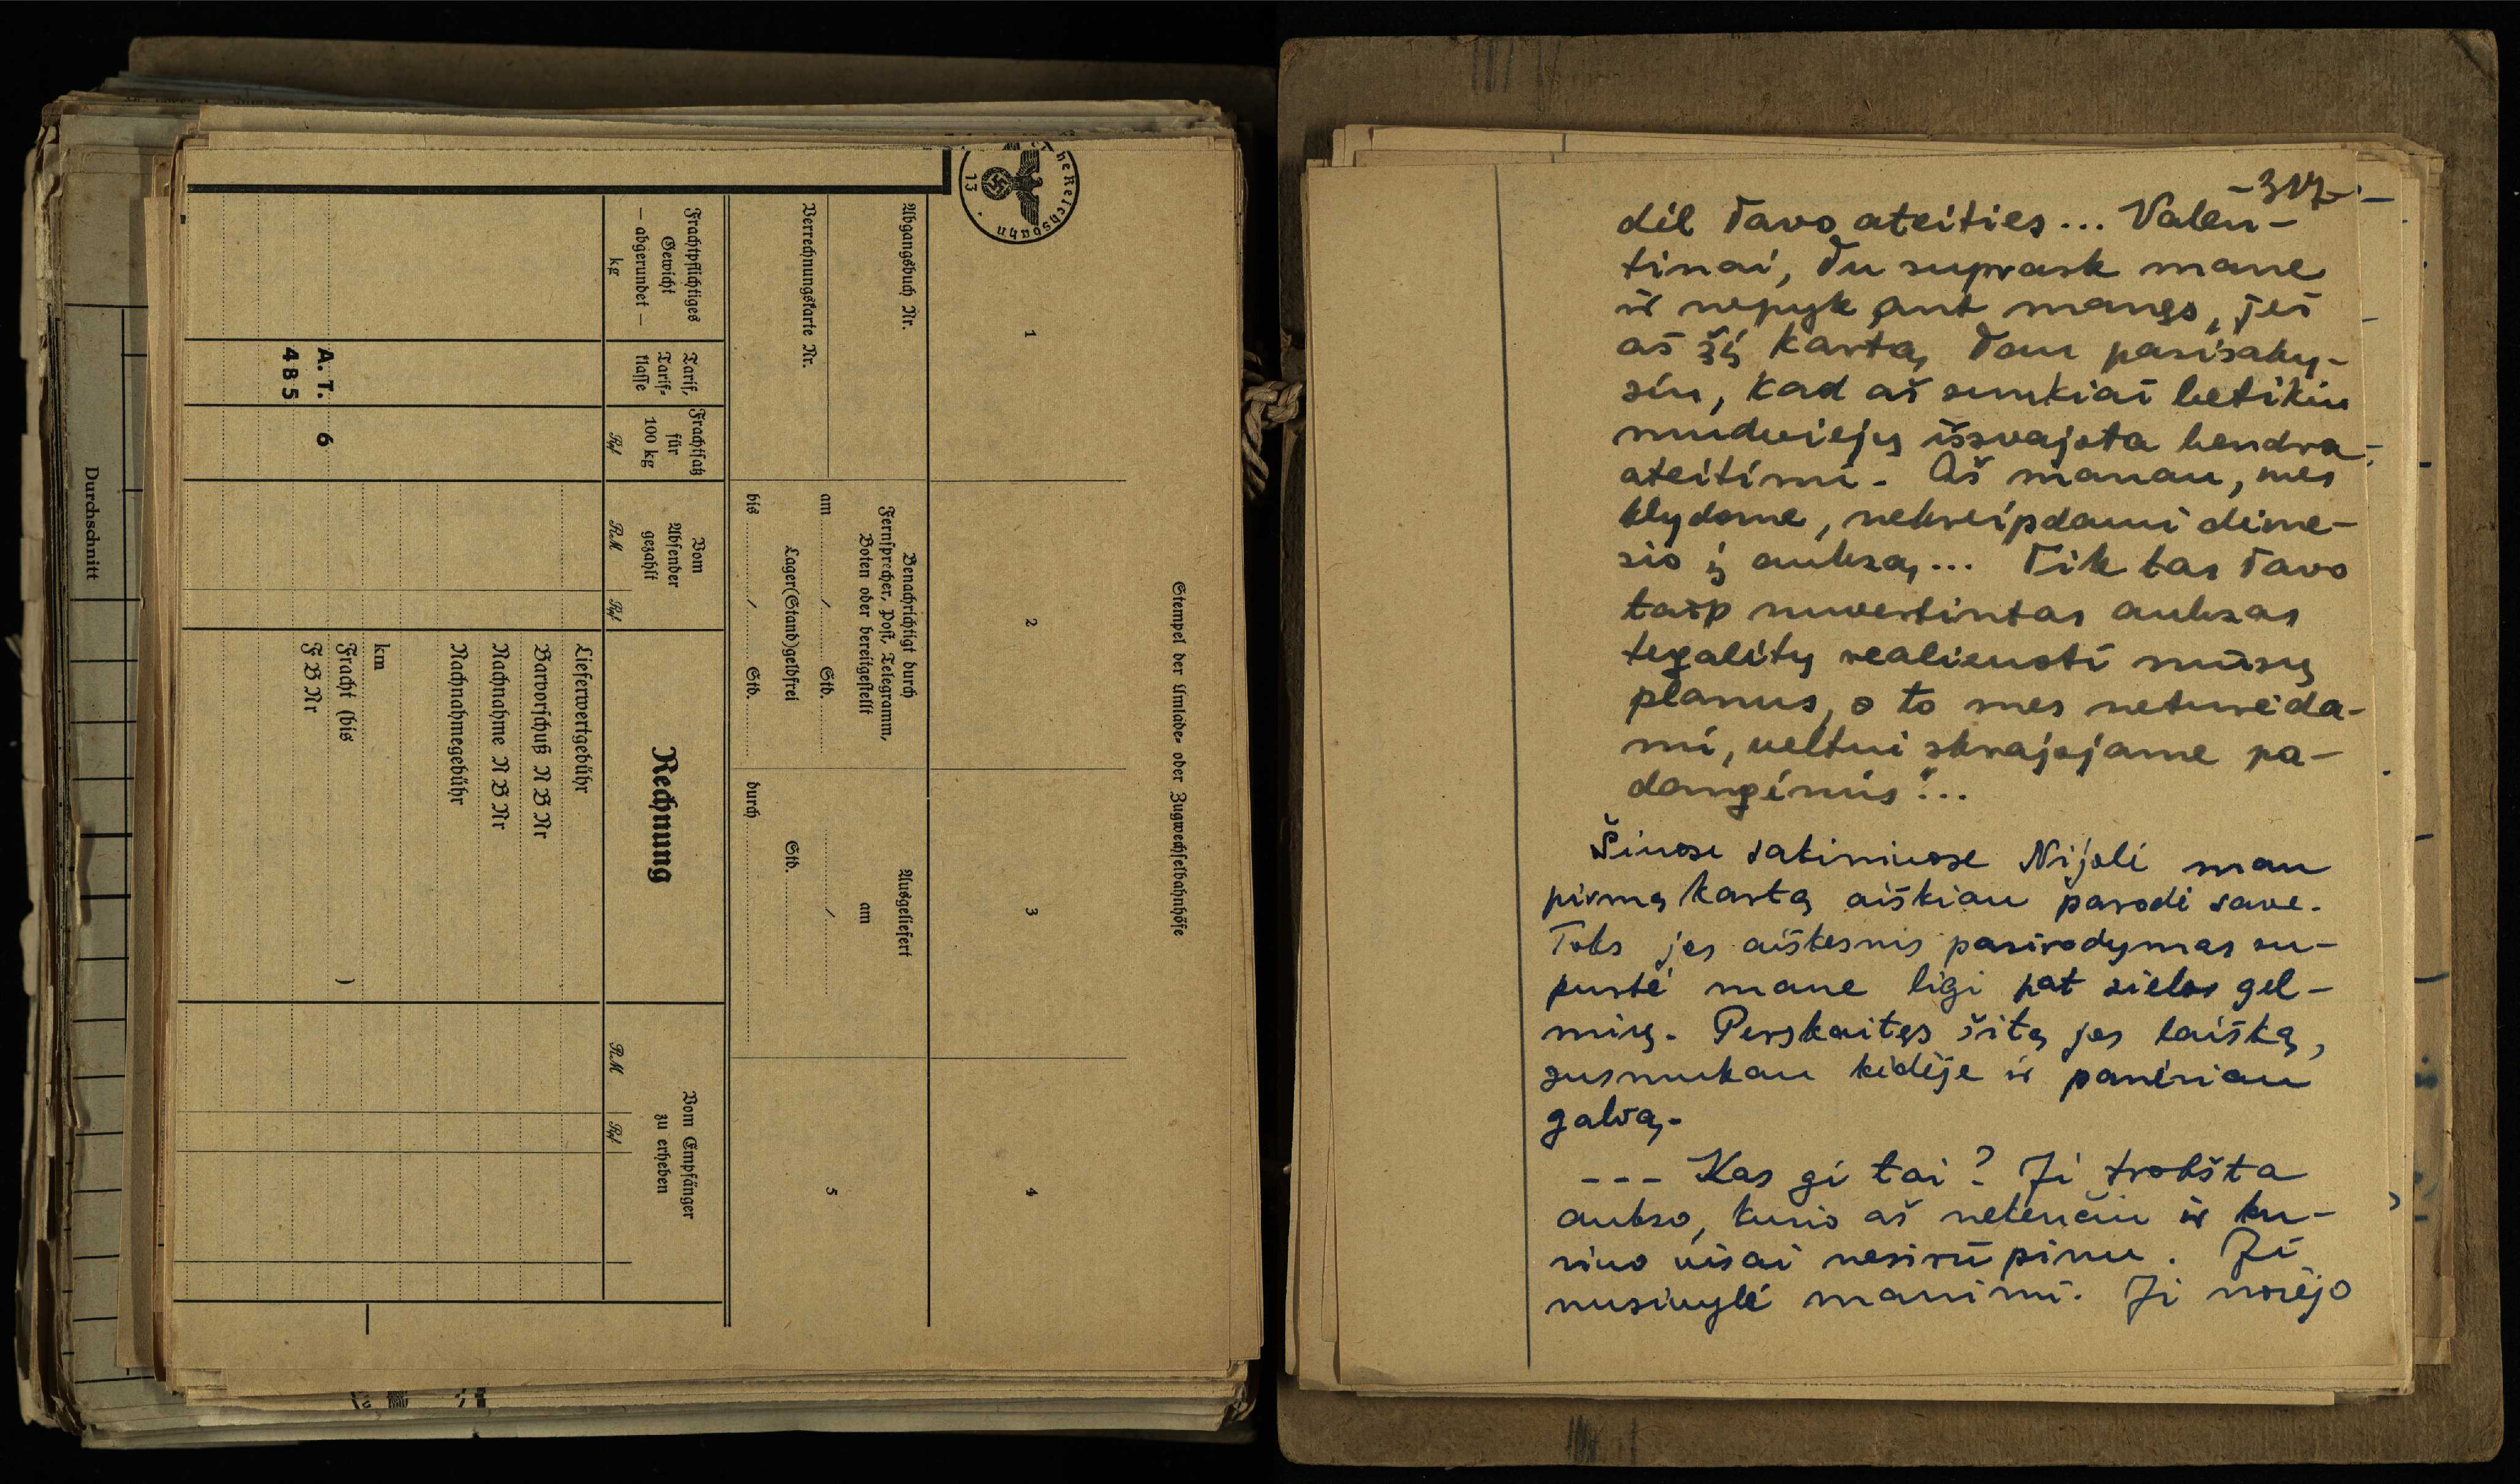 Durchschnitt
Stempel der Umlade- oder Zugwechselbahnhöfe
1
2
3
4
Reichsbahn
13
Abgangsbuch Nr.
Verrechnungskarte Nr.
Benachrichtigt durch
Fernsprecher, Post, Telegramm,
Boten oder bereitgestellt
am / Std.
Lager(Stand)geldfrei
bis / Std.
Ausgeliefert
am
/
Std.
durch
5
Frachtpflichtiges
Gewicht
— abgerundet —
kg
Tarif,
Tarif-
klasse
Frachtsatz
für
100 kg
Rpf
Vom
Absender
gezahlt
RM Rpf
Rechnung
Vom Empfänger
zu erheben
RM Rpf
Lieferwertgebühr
Barvorschuß N B Nr
Nachnahme N B Nr
Nachnahmegebühr
km
Fracht (bis )
F B Nr
A. T. 6
4 B 5
-317-
dėl Tavo ateities... Valen-
tinai, Tu suprask mane
ir nepyk ant manęs, jei
aš šį kartą Tau pasisaky-
siu, kad aš sunkiai betikiu
mudviejų išsvajota bendra
ateitimi. Aš manau, mes
klydome, nekreipdami dėme-
sio į auksą... Tik tas Tavo
taip nuvertintas auksas
tegalėtų realizuoti mūsų
planus, o to mes neturėda-
mi, veltui skrajojame pa-
dangėmis"...
Šiuose sakiniuose Nijolė man
pirmą kartą aiškiau parodė save.
Toks jos aiškesnis pasirodymas su-
purtė mane ligi pat sielos gel-
mių. Perskaitęs šitą jos laišką,
susmukau kėdėje ir panėriau
galvą.
--- Kas gi tai? Ji trokšta
aukso, kurio aš nekenčiu ir ku-
riuo visai nesirūpinu. Ji
nusivylė manimi. Ji norėjo